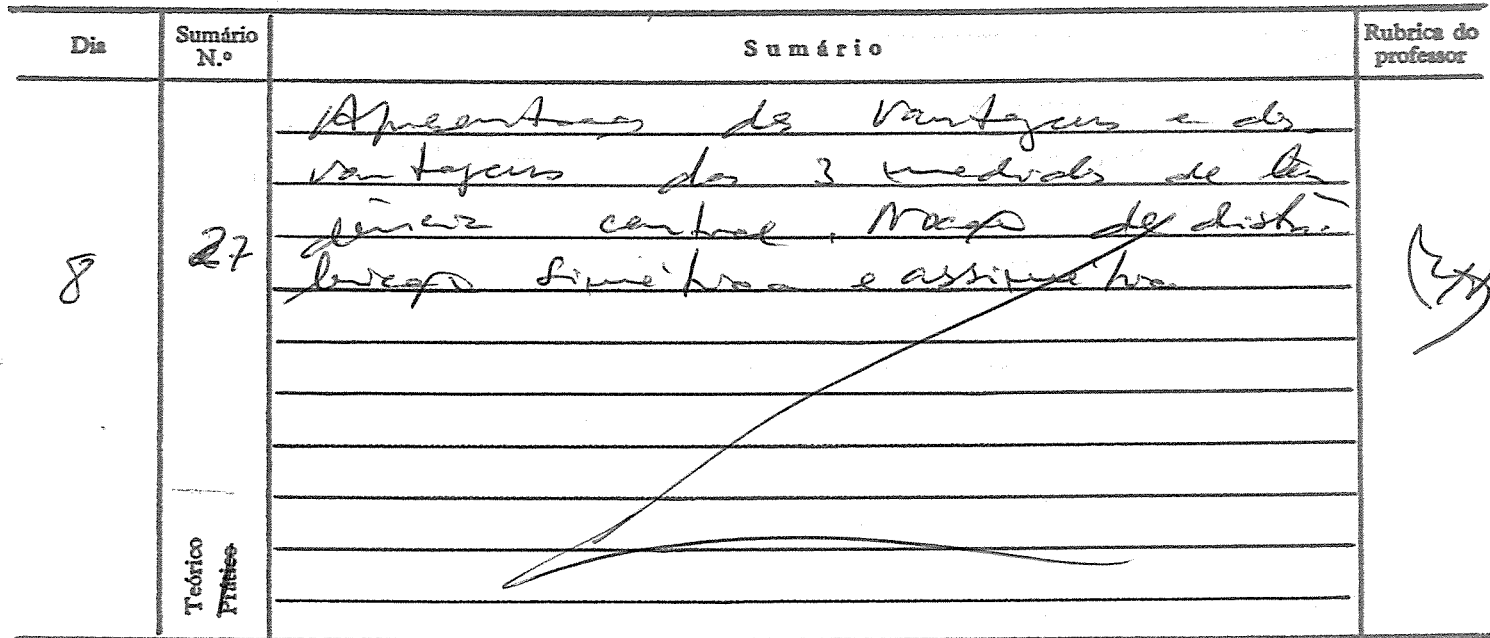 Dia
Sumário N.º
Sumário
Rubrica do professor
8
27
Apresentação das vantagens e des
vantagens das 3 medidas de ten
dência central, Noção de distri
buição simétrica e assimétrica
Teórico
Prático